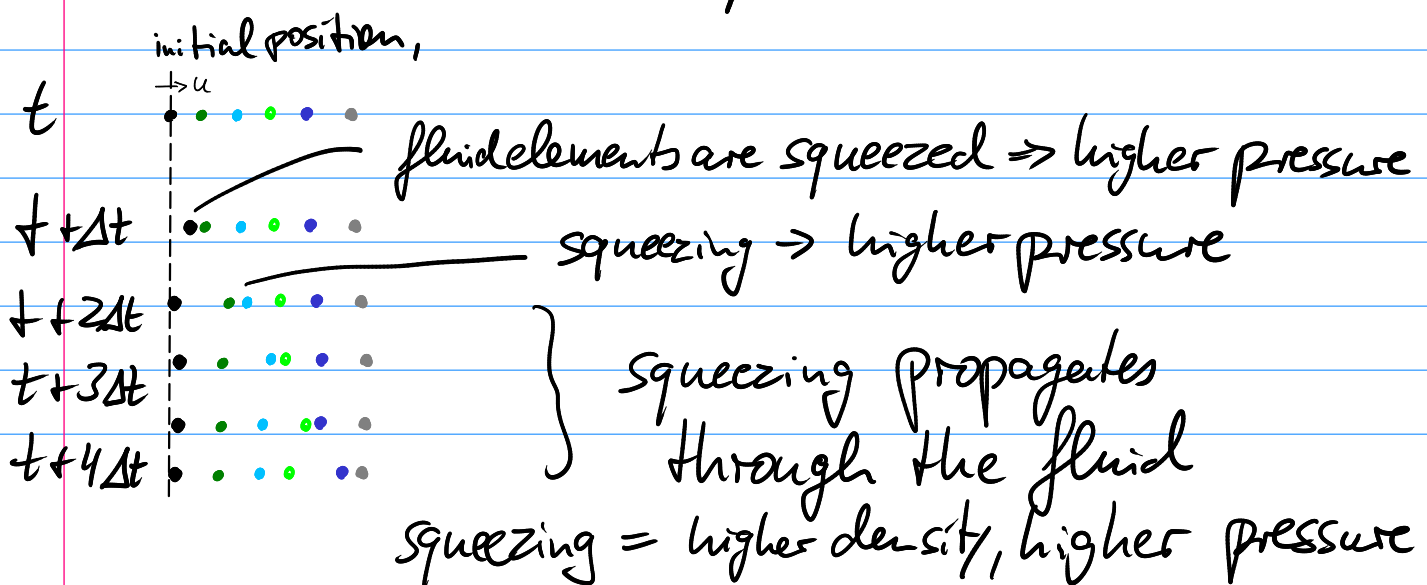 initial position,
→ u
t
fluid elements are squeezed => higher pressure
t + Δt
squeezing → higher pressure
t + 2Δt
t + 3Δt
squeezing propagates
through the fluid
t + 4Δt
squeezing = higher density, higher pressure